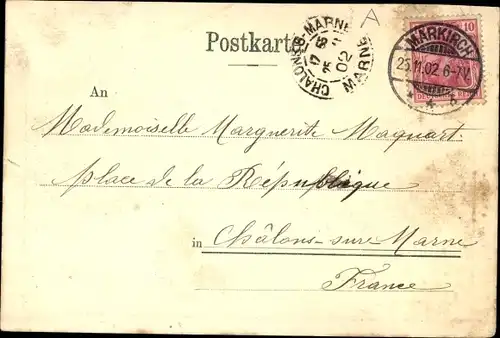 Postkarte
CHALONS-S-MARNE
02
MARNE
A
10
MARKIRCH
25.11.02 6-7V.
An
Mademoiselle Marguerite Maquart
place de la République
in Châlons-sur-Marne
France